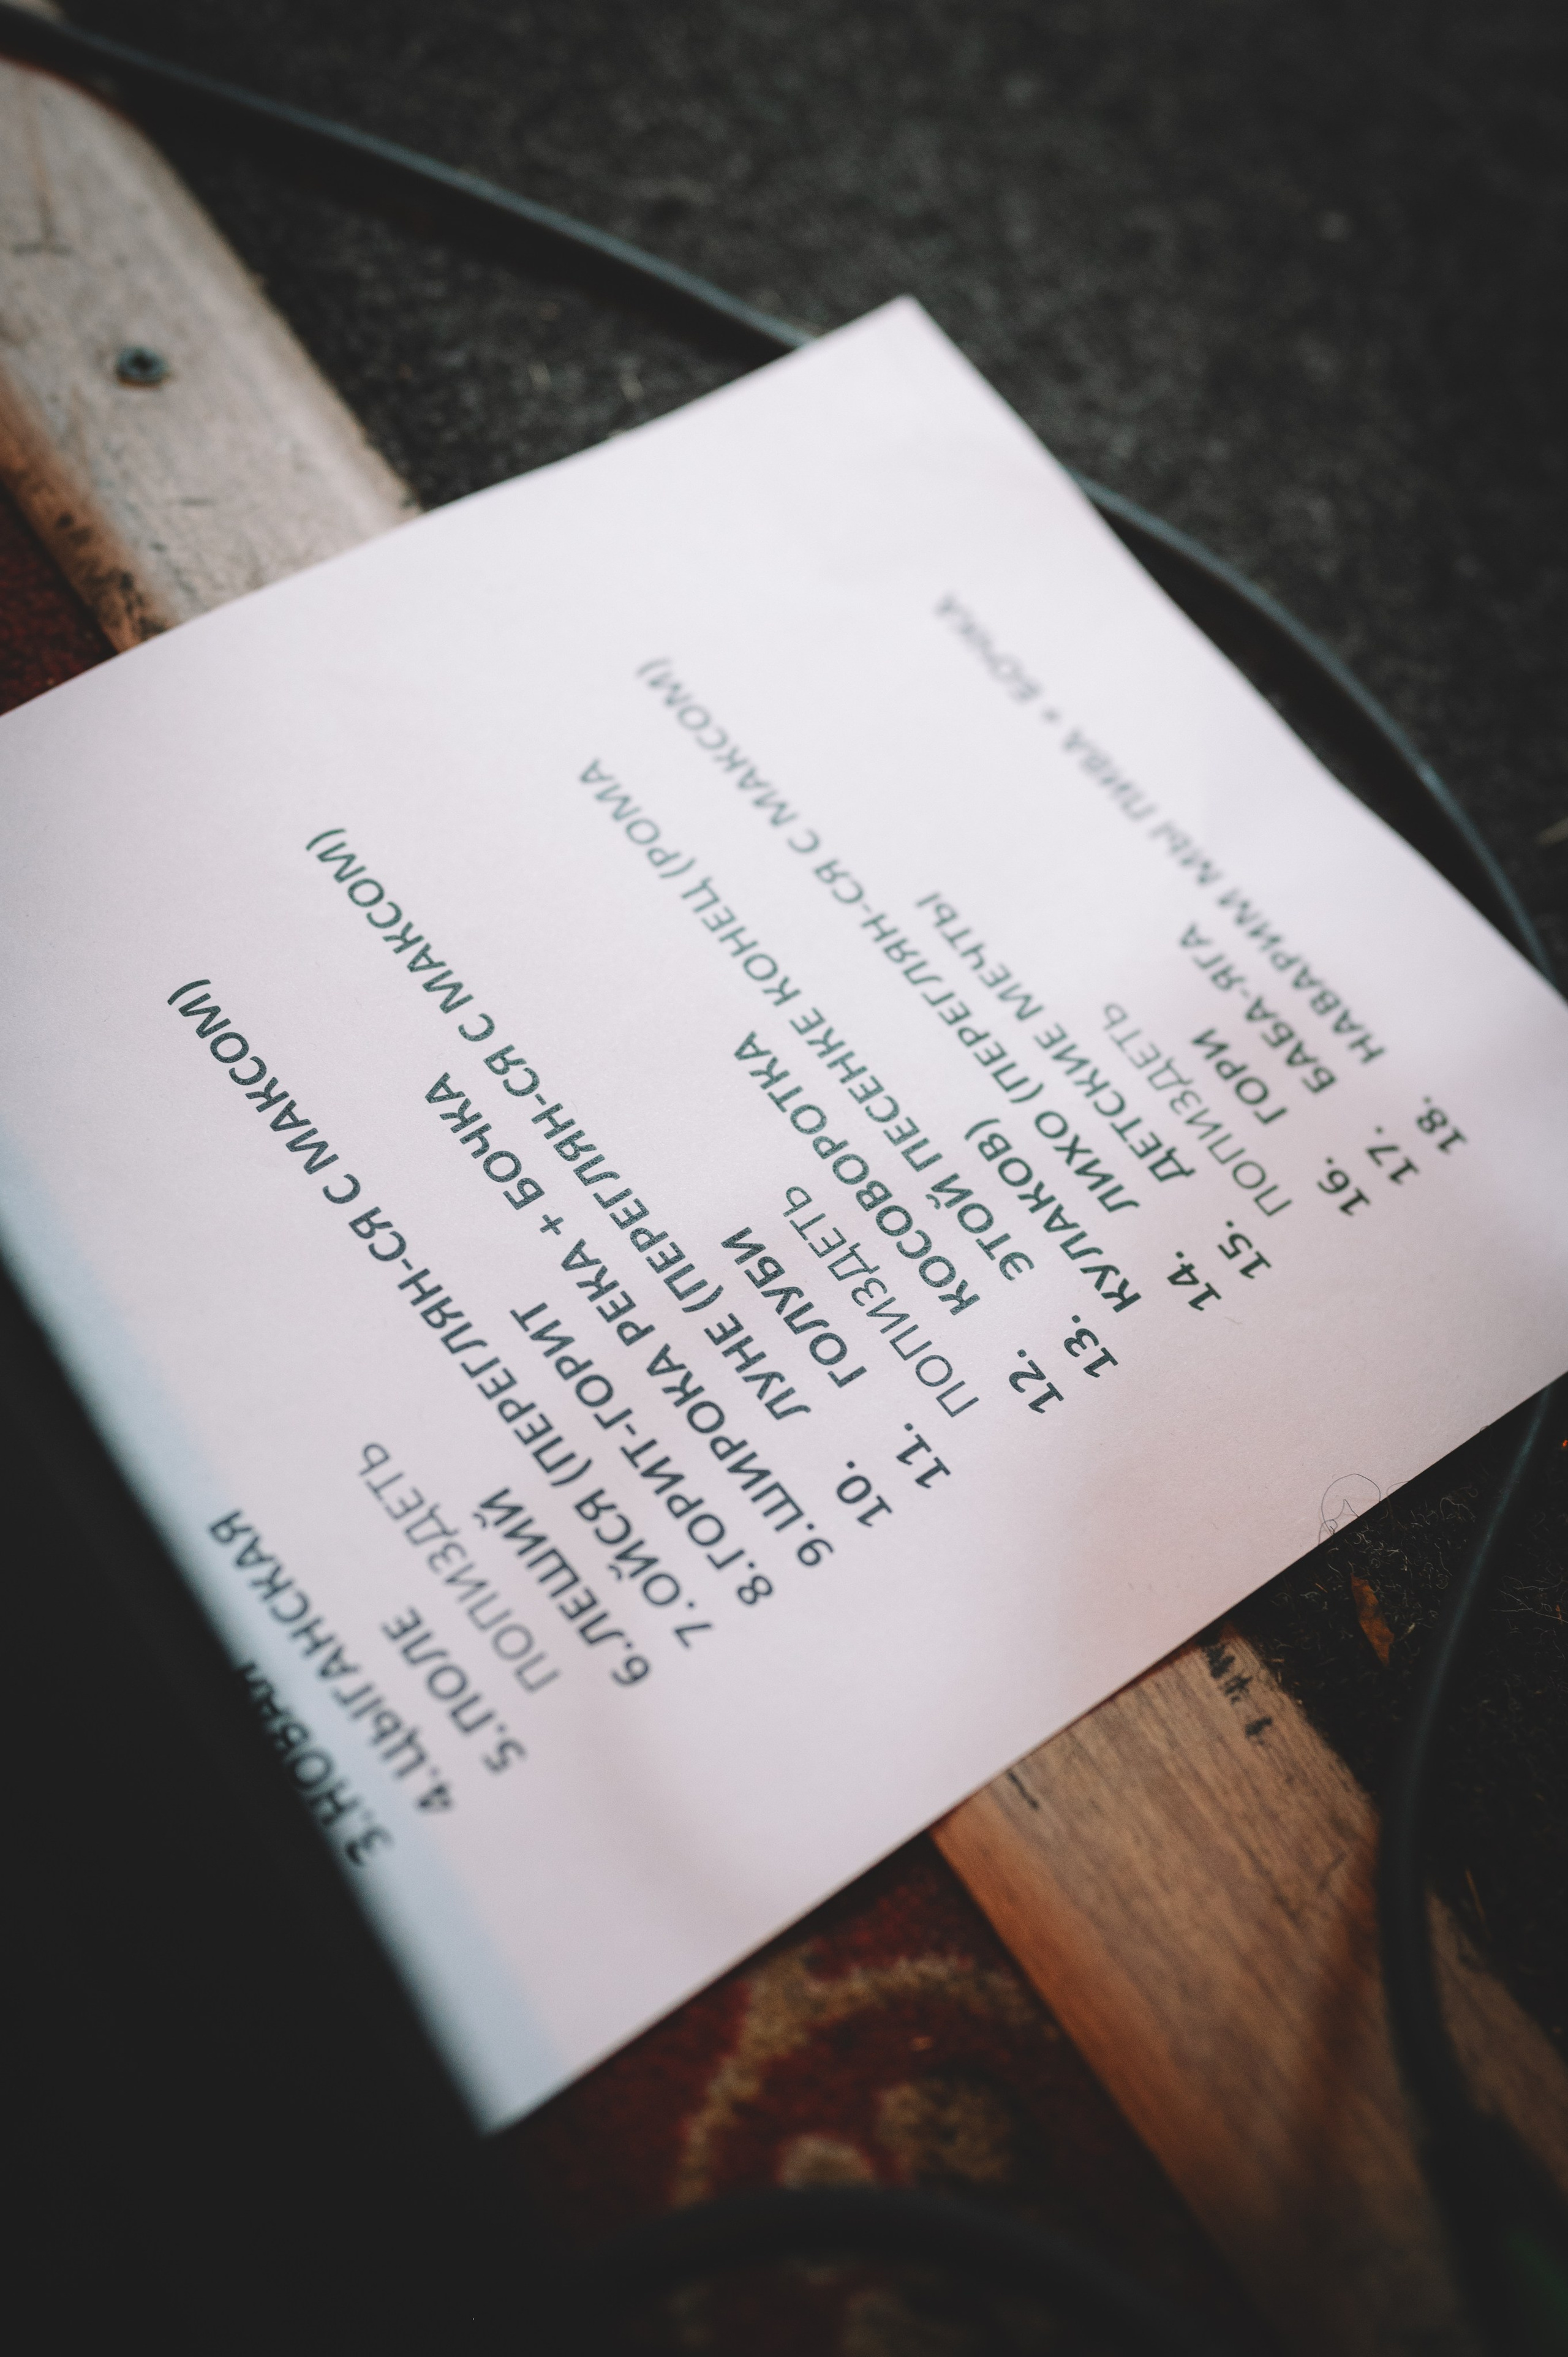 3.НОВАЯ
4.ЦЫГАНСКАЯ
5.ПОЛЕ
ПОПИЗДЕТЬ
6.ЛЕШИЙ
7.ОЙСЯ (ПЕРЕГЛЯН-СЯ С МАКСОМ)
8.ГОРИТ-ГОРИТ
9.ШИРОКА РЕКА + БОЧКА
10. ЛУНЕ (ПЕРЕГЛЯН-СЯ С МАКСОМ)
11. ГОЛУБИ
ПОПИЗДЕТЬ
12. КОСОВОРОТКА
13. ЭТОЙ ПЕСЕНКЕ КОНЕЦ (РОМА
КУЛАКОВ)
14. ЛИХО (ПЕРЕГЛЯН-СЯ С МАКСОМ)
15. ДЕТСКИЕ МЕЧТЫ
ПОПИЗДЕТЬ
16. ГОРИ
17. БАБА-ЯГА
18. НАВАРИМ МЫ ПИВА + БОЧКА